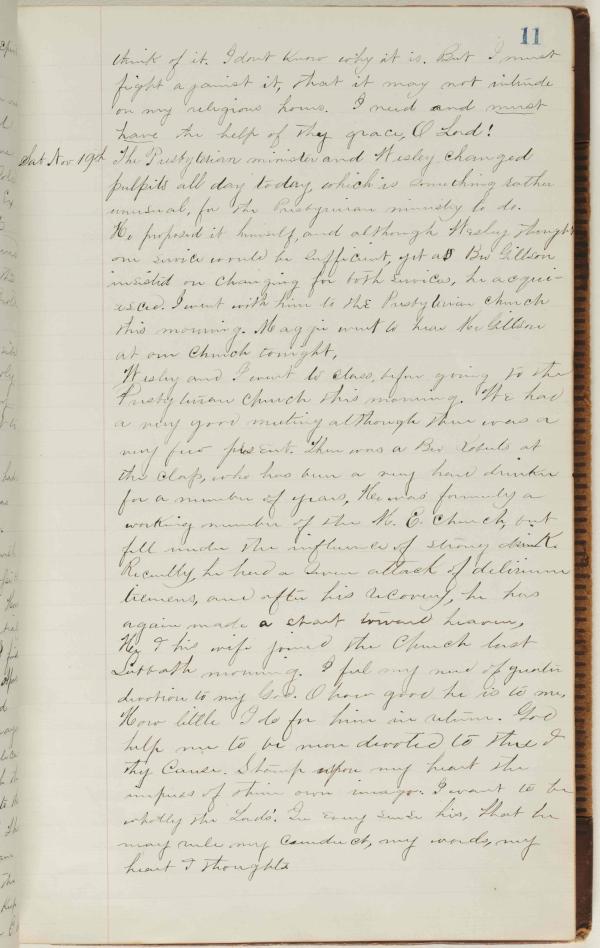 11
think of it. I dont know why it is. But I must
fight against it, that it may not intrude
on my religious hours. I need and must
have the help of thy grace, O Lord!
Sat Nov 19th The Presbyterian minister and Wesley changed
pulpits all day today, which is something rather
unusual, for the Presbyterian ministry to do.
He proposed it himself, and although Wesley thought
one service would be sufficient, yet as Bro Gillson
insisted on changing for both services, he acqui-
esced. I went with him to the Presbyterian church
this morning. Maggie went to hear Mr Gillson
at our church tonight,
Wesley and I went to class, before going to the
Presbyterian church this morning. We had
a very good meeting although there was a
very few present. There was a Bro Roberts at
the class, who has been a very hard drinker
for a number of years, He was formerly a
working member of the M. E. Church, but
fell under the influence of strong drink.
Recently, he had a severe attack of delirium
tremens, and after his recovery, he has
again made a start toward heaven,
He & his wife joined the Church last
Sabbath morning. I feel my need of greater
devotion to my God. O how good he is to me,
How little I do for him in return. God
help me to be more devoted to thee &
thy Cause. Stamp upon my heart the
impress of thine own image. I want to be
wholly the Lords'. In every sense his, that he
may rule my conduct, my words, my
heart & thoughts